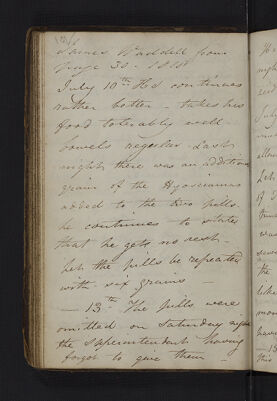 James Waddell from
page 30 - 1818
July 10th He continues
rather better - takes his
food tolerably well
bowels regular - Last
night there was an additional
grain of the Hyosciamus
added to the two pills.
he continues to state
that he gets no rest -
let the pills be repeated
with six grains -
- 13th The pills were
omitted on Saturday night
the Superintendent having
forgot to give them -